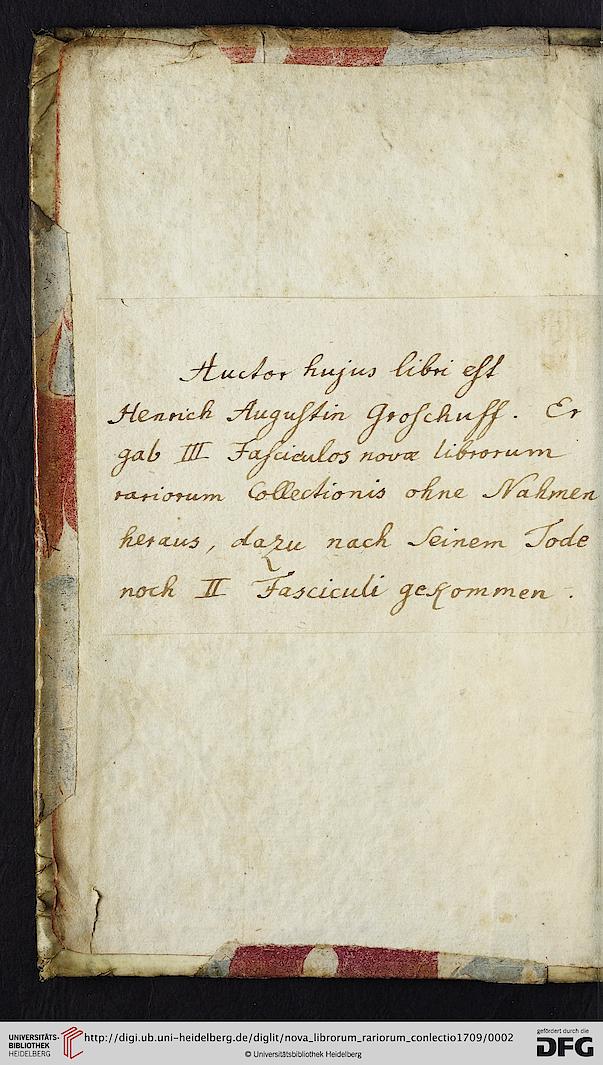 Auctor hujus libri est
Henrich Augustin Groschuff. Er
gab III Fasciculos novæ librorum
rariorum Collectionis ohne Nahmen
heraus, dazu nach seinem Tode
noch II Fasciculi gekommen.
UNIVERSITÄTS-
BIBLIOTHEK
HEIDELBERG
http://digi.ub.uni-heidelberg.de/diglit/nova_librorum_rariorum_conlectio1709/0002
© Universitätsbibliothek Heidelberg
gefördert durch die
DFG